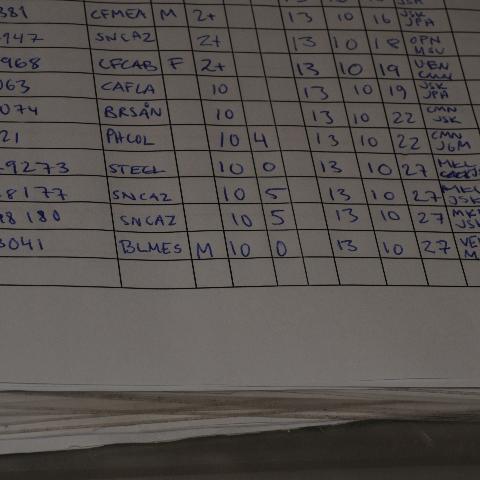 381 CFMEA M 2+ 13 10 16 JSK JPA
947 SNCAZ 2+ 13 10 18 OPN MSV
968 CFCAB F 2+ 13 10 19 VEN CMN
063 CAFLA 10 13 10 19 JSK JPA
074 BRSÅN 10 13 10 22 CMN JSK
21 PHCOL 10 4 13 10 22 CMN JGM
9273 STECL 10 0 13 10 27 MKL
8177 SNCAZ 10 5 13 10 27 MKL JSK
8180 SNCAZ 10 5 13 10 27 MKL JSK
3041 BLMES M 10 0 13 10 27 VEN M